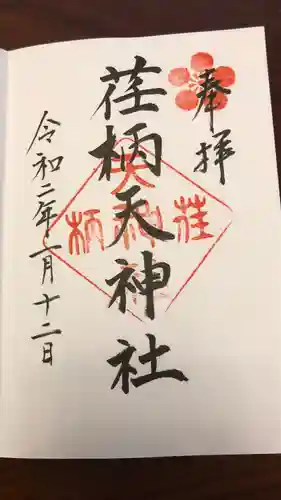 奉拝
荏柄天神社
令和二年一月十二日